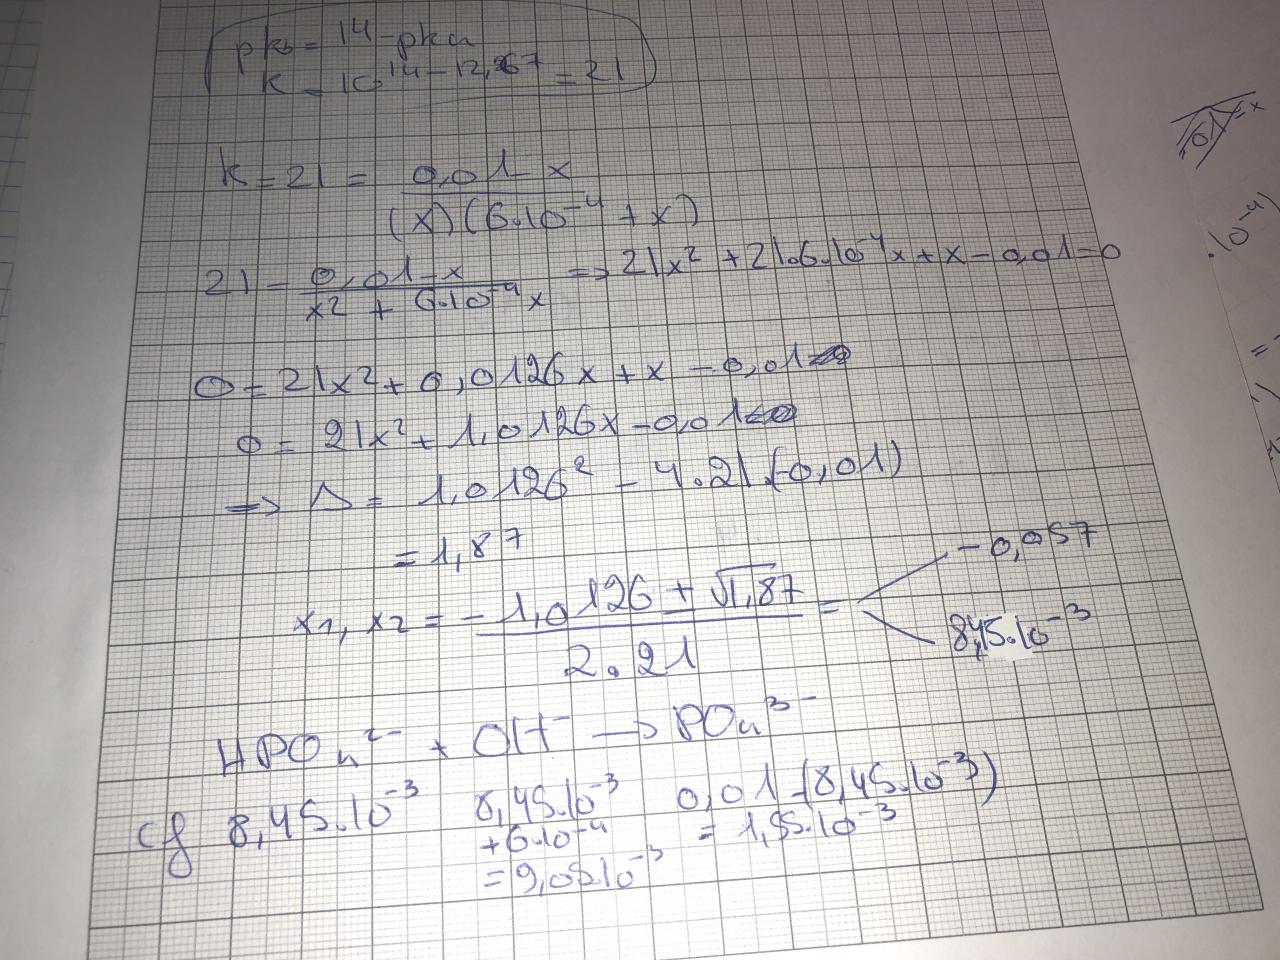 pkb = 14 - pka
K = 10^14-12,67 = 21
K = 21 = 0,01 - x / (x)(6.10^-4 + x)
21 = 0,01 - x / x² + 6.10^-4 x => 21x² + 21.6.10^-4 x + x - 0,01 = 0
0 = 21x² + 0,0126x + x - 0,01
0 = 21x² + 1,0126x - 0,01
=> Δ = 1,0126² - 4.21.(-0,01)
= 1,87
x1, x2 = -1,0126 ± √1,87 / 2.21 = -0,057
8,45.10^-3
HPO4^2- + OH^- → PO4^3-
Cf 8,45.10^-3 8,45.10^-3 0,01 - (8,45.10^-3)
+6.10^-4 = 1,55.10^-3
= 9,05.10^-3
.10^-4)